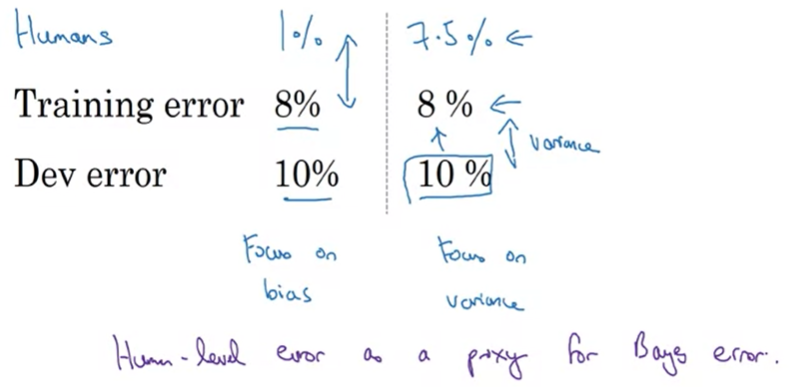 Humans 1% 7.5%
Training error 8% 8 %
variance
Dev error 10% 10 %
Focus on bias
Focus on variance
Human-level error as a proxy for Bayes error.